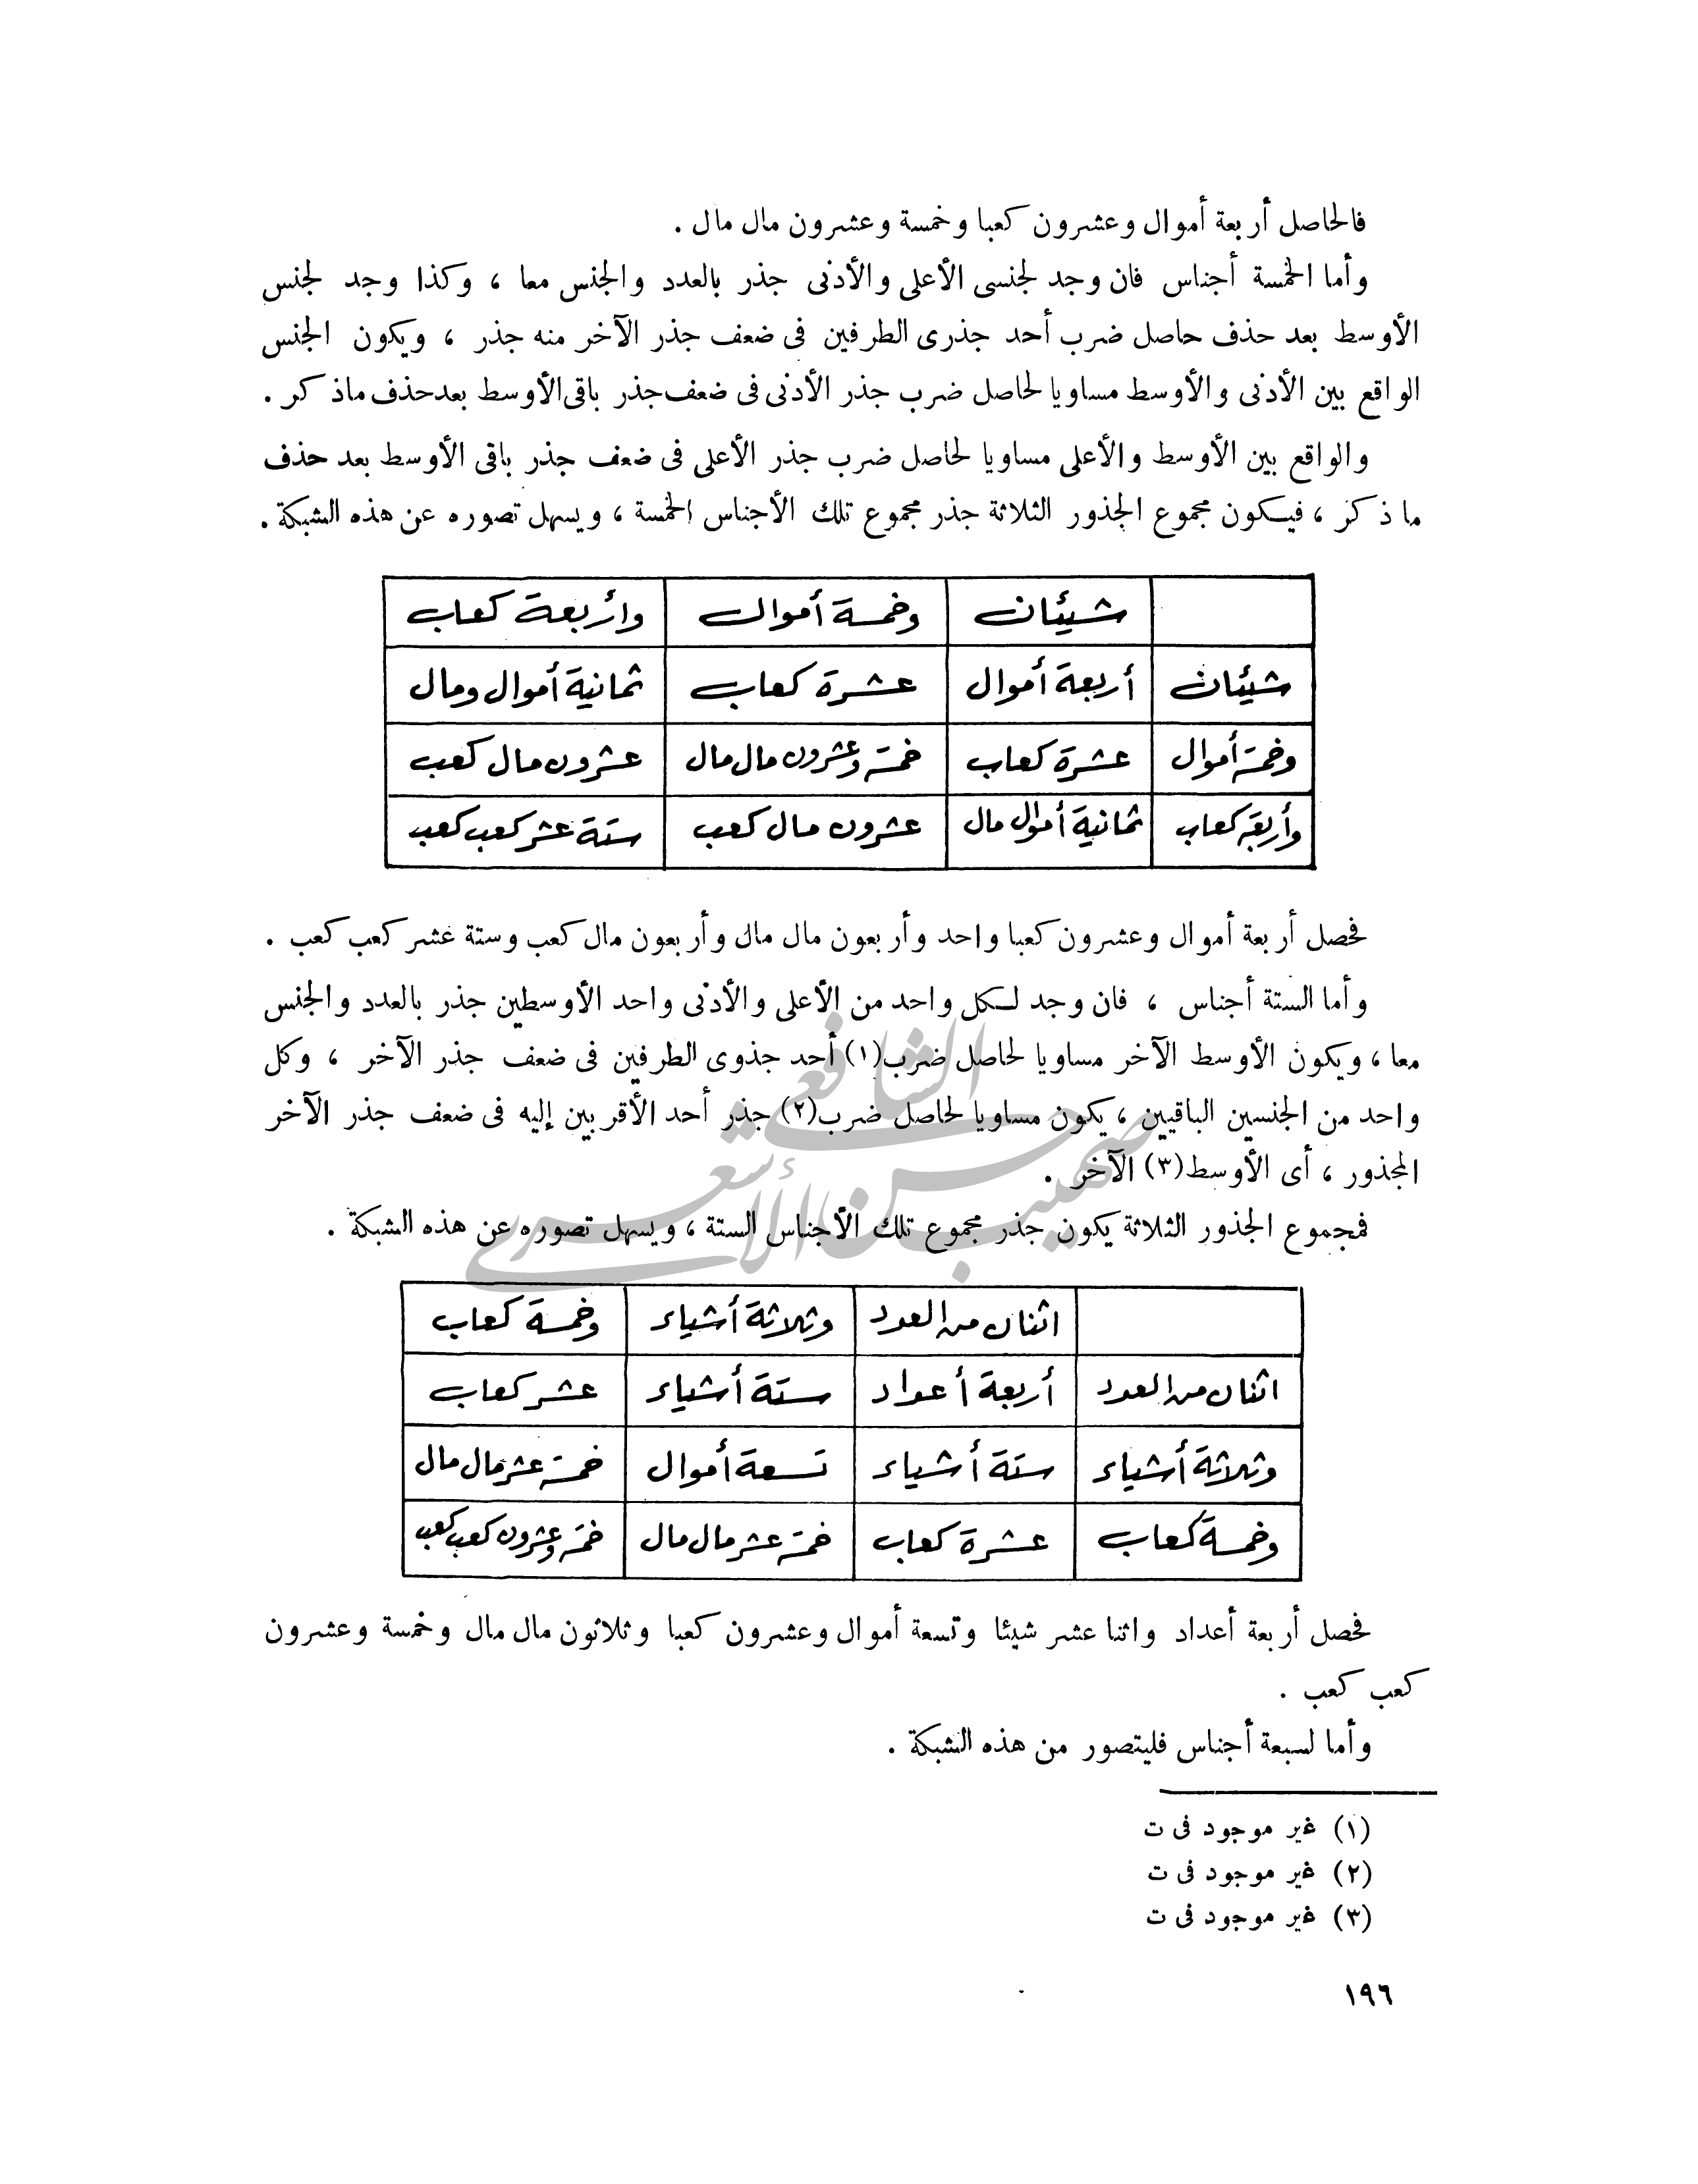 فالحاصل أربعة أموال وعشرون كعبا وخمسة وعشرون مال مال .
وأما الخمسة أجناس فان وجد لجنسى الأعلى والأدنى جذر بالعدد والجنس معا ، وكذا وجد لجنس
الأوسط بعد حذف حاصل ضرب أحد جذرى الطرفين فى ضعف جذر الآخر منه جذر ، ويكون الجنس
الواقع بين الأدنى والأوسط مساويا لحاصل ضرب جذر الأدنى فى ضعف جذر باقى الأوسط بعد حذف ماذكر .
والواقع بين الأوسط والأعلى مساويا لحاصل ضرب جذر الأعلى فى ضعف جذر باقى الأوسط بعد حذف
ما ذكر ، فيكون مجموع الجذور الثلاثة جذر مجموع تلك الأجناس الخمسة ، ويسهل تصوره عن هذه الشبكة .
شيئان وخمسة أموال وأربعة كعاب
شيئان أربعة أموال عشرة كعاب ثمانية أموال ومال
وخمسة أموال عشرة كعاب خمسة وعشرون مال مال عشرون مال كعب
وأربعة كعاب ثمانية أموال مال عشرون مال كعب ستة عشر كعب كعب
فحصل أربعة أموال وعشرون كعبا واحد وأربعون مال مال وأربعون مال كعب وستة عشر كعب كعب .
وأما الستة أجناس ، فان وجد لكل واحد من الأعلى والأدنى واحد الأوسطين جذر بالعدد والجنس
معا ، ويكون الأوسط الآخر مساويا لحاصل ضرب(١) أحد جذوى الطرفين فى ضعف جذر الآخر ، وكل
واحد من الجنسين الباقيين ، يكون مساويا لحاصل ضرب(٢) جذر أحد الأقربين إليه فى ضعف جذر الآخر
المجذور ، أى الأوسط(٣) الآخر .
فمجموع الجذور الثلاثة يكون جذر مجموع تلك الأجناس الستة ، ويسهل تصوره عن هذه الشبكة .
اثنان من العدد وثلاثة أشياء وخمسة كعاب
اثنان من العدد أربعة أعداد ستة أشياء عشر كعاب
وثلاثة أشياء ستة أشياء تسعة أموال خمسة عشر مال مال
وخمسة كعاب عشرة كعاب خمسة عشر مال مال خمسة وعشرون كعب كعب
فحصل أربعة أعداد واثنا عشر شيئا وتسعة أموال وعشرون كعبا وثلاثون مال مال وخمسة وعشرون
كعب كعب .
وأما لسبعة أجناس فليتصور من هذه الشبكة .
(١) غير موجود فى ت
(٢) غير موجود فى ت
(٣) غير موجود فى ت
١٩٦